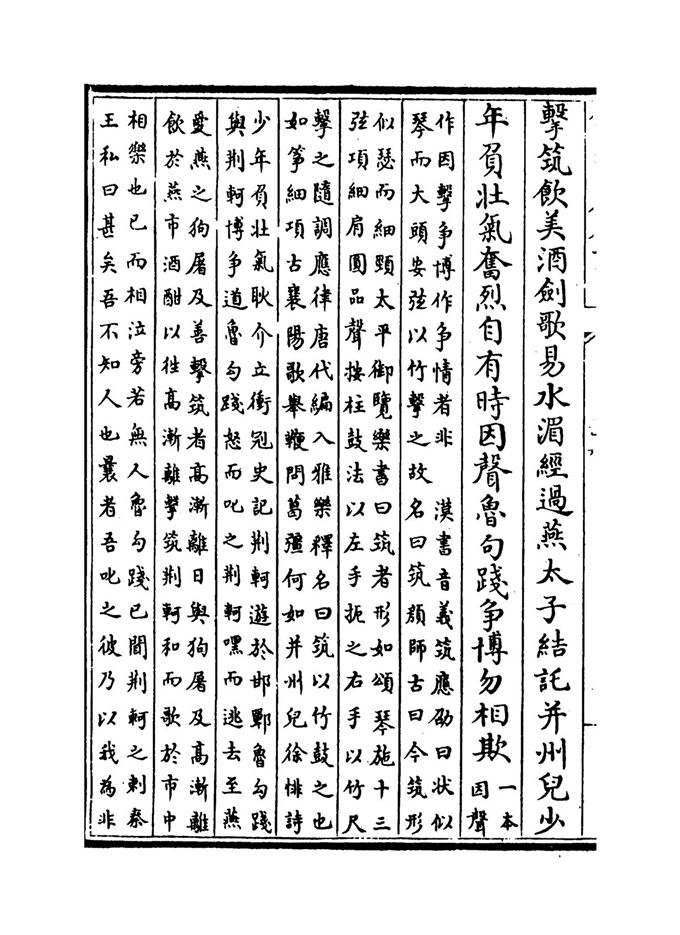 擊筑飲美酒劍歌易水湄經過燕太子結託并州兒少
年負壯氣奮烈自有時因聲魯句踐争博勿相欺
一本
因聲
作因擊争博作争情者非　漢書音義筑應劭曰狀似
琴而大頭安弦以竹擊之故名曰筑顔師古曰今筑形
似瑟而細頸太平御覽樂書曰筑者形如頌琴施十三
弦項細肩圓品聲按柱鼓法以左手扼之右手以竹尺
擊之隨調應律唐代編入雅樂釋名曰筑以竹鼓之也
如筝細項古襄陽歌舉鞭問葛彊何如并州兒徐悱詩
少年負壯氣耿介立衝冠史記荆軻遊於邯鄲魯勾踐
與荆軻博争道魯勾踐怒而叱之荆軻嘿而逃去至燕
愛燕之狗屠及善擊筑者高漸離日與狗屠及高漸離
飲於燕市酒酣以徃高漸離擊筑荆軻和而歌於市中
相樂也已而相泣旁若無人魯勾踐已聞荆軻之刺秦
王私曰甚矣吾不知人也曩者吾叱之彼乃以我為非